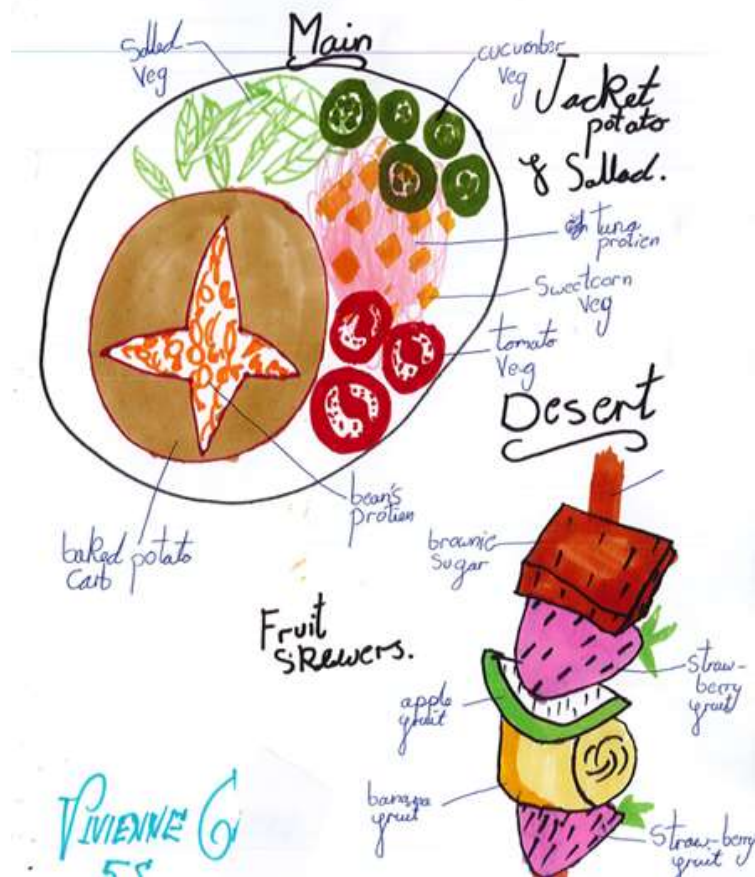 Main
Salled
veg
cucumber
veg
Jacket
potato
& Sallad.
tuna
protien
Sweetcorn
veg
tomato
veg
bean's
protien
baked potato
carb
Desert
brownie
sugar
Fruit
skewers.
straw-
berry
fruit
apple
fruit
banana
fruit
straw-berry
fruit
VIVIENNE G
5S